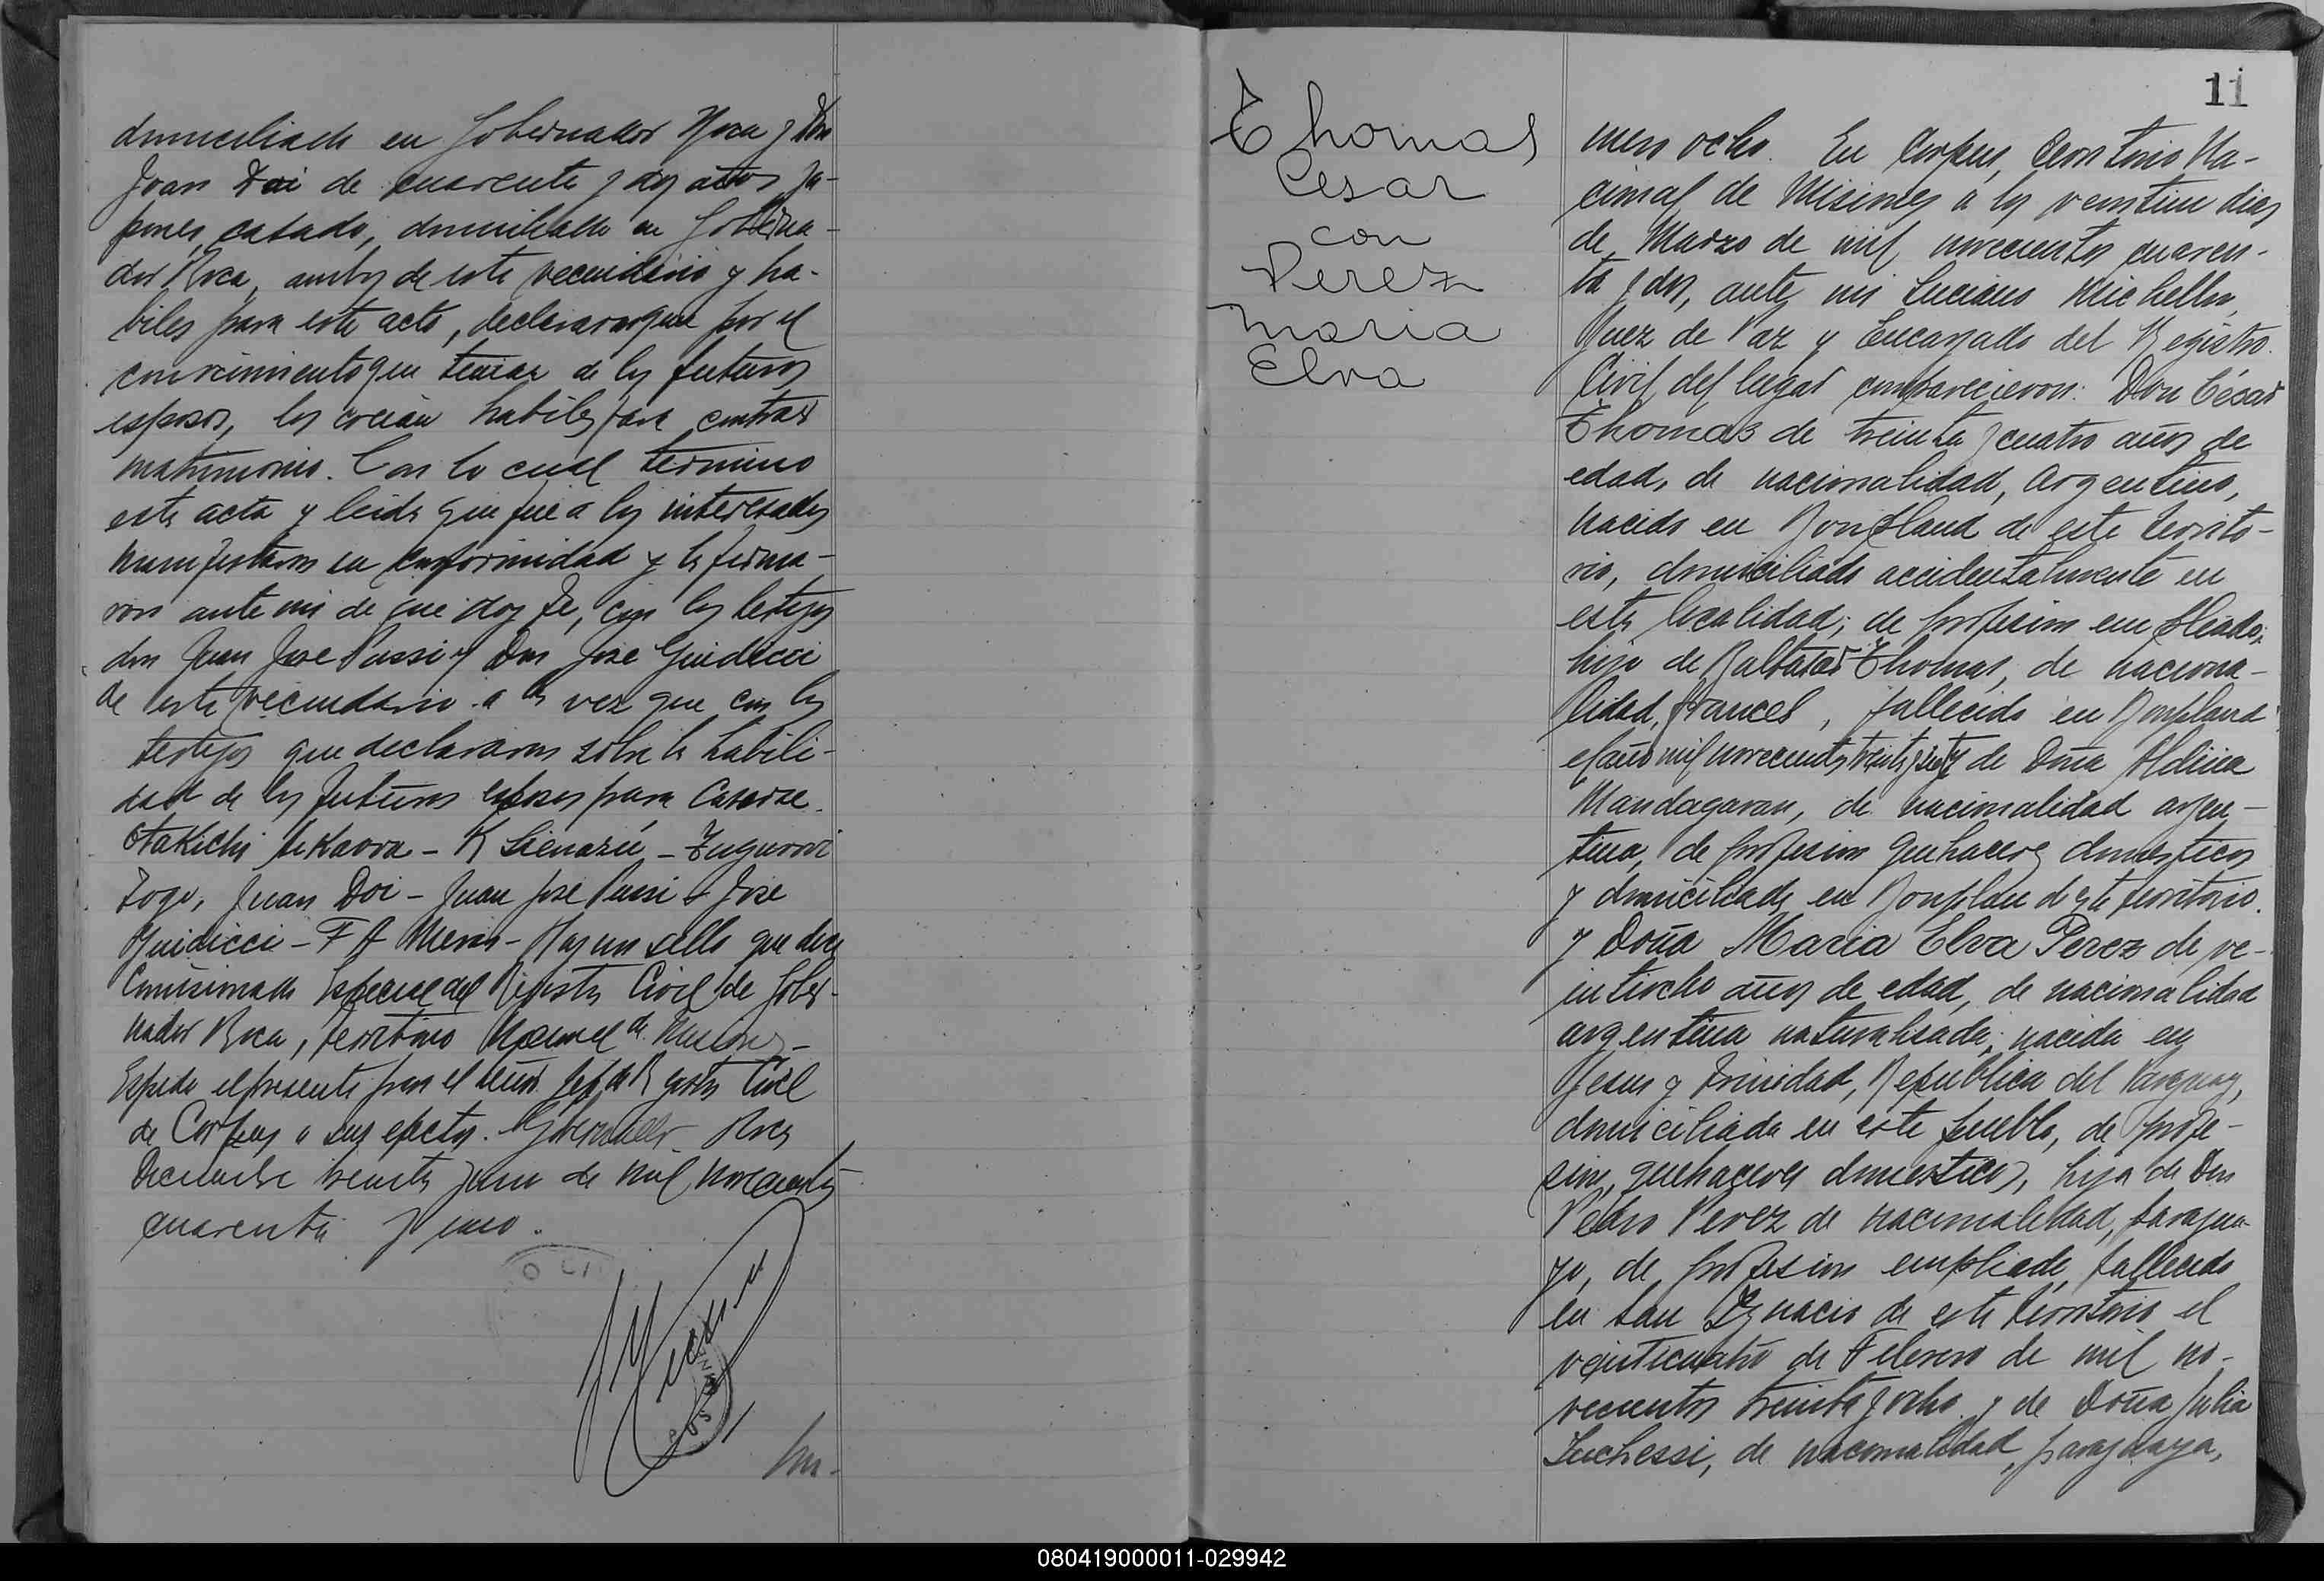 domiciliado en Gobernador Roca y Don
Juan Doi de cuarenta y dos años ja-
pones, casado, domiciliado en Goberna-
dor Roca, ambos de este vecindario y ha-
biles para este acto, declararon que por el
conocimiento que tenian de los futuros
esposos, los creian habiles para contraer
matrimonio. Con lo cual termino
este acta y leida que fue a los interesados
manifestaron su conformidad y la firma-
ron ante mi de que doy fe, con los testigos
don Juan Jose Pussi y Don Jose Guidicci
de este vecindario a la vez que con los
testigos que declararon sobre la habili-
dad de los futuros esposos para casarse.
Otakichi - K -
Togo, Juan Doi - Juan Jose Pussi - Jose
Guidicci - F A - Hay un sello que dice
Comisionado Especial del Registro Civil de Gober-
nador Roca, territorio Nacional de Misiones -
Expido el presente para el señor Jefe de Registro Civil
de Corpus a sus efectos. Gobernador Roca
Diciembre treinta y uno de mil novecientos
cuarenta y uno.
11
Thomas
Cesar
con
Perez
Maria
Elva
mero ocho. En Corpus, Territorio Na-
cional de Misiones a los veintiun dias
de Marzo de mil novecientos cuaren-
ta y dos, ante mi Luciano Michellon,
Juez de Paz y Encargado del Registro
Civil del lugar comparecieron: Don César
Thomas de treinta y cuatro años de
edad, de nacionalidad, argentino,
nacido en Bonpland de este territo-
rio, domiciliado accidentalmente en
esta localidad; de profesion empleado;
hijo de Baltasar Thomas, de naciona-
lidad, frances, fallecido en Bonpland
el año mil novecientos treinta y siete y de Doña
Mandagaran, de nacionalidad argen-
tina, de profesion quehaceres domesticos
y domiciliada en Bonplan de este territorio.
y Doña Maria Elva Perez de ve-
intiocho años de edad, de nacionalidad
argentina naturalisada, nacida en
Jesus y Trinidad, Republica del Paraguay,
domiciliada en este pueblo, de profe-
sion, quehaceres domesticos, hija de Don
Pedro Perez de nacionalidad, paragua-
yo, de profesion empleado, fallecido
en San Ignacio de este territorio el
veinticuatro de Febrero de mil no-
vecientos treinta y ocho y de Doña Julia
Luchessi, de nacionalidad, paraguaya,
080419000011-029942